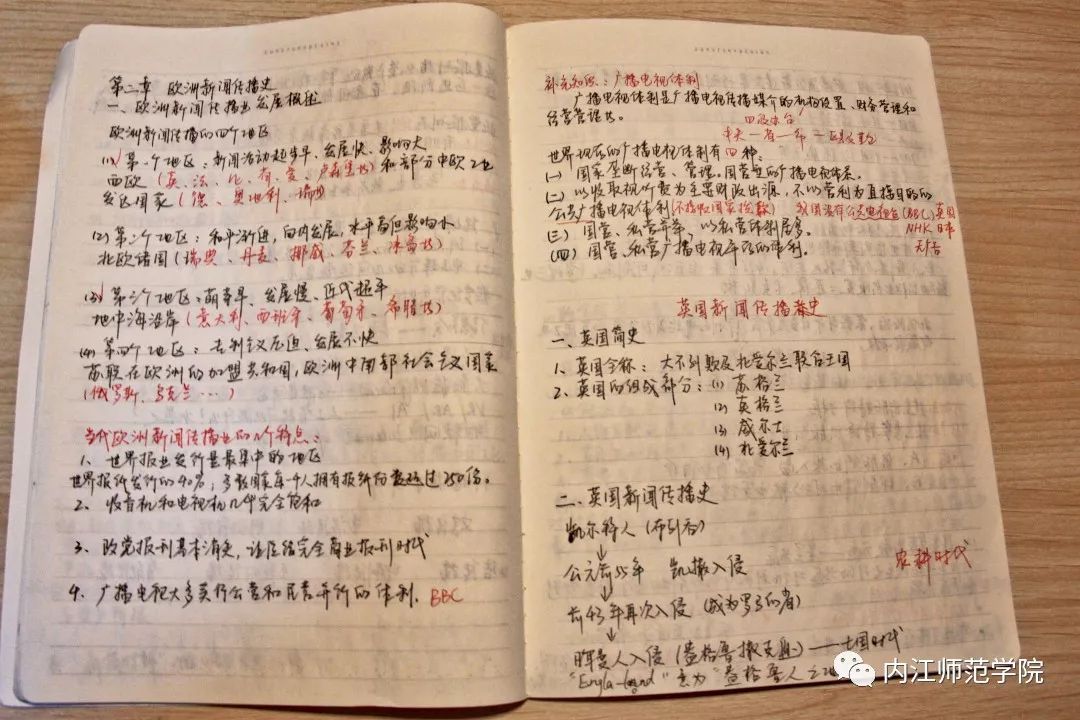 第二章 欧洲新闻传播史
一、欧洲新闻传播业发展概述
欧洲新闻传播的四个地区
(1) 第一个地区:新闻活动起步早、发展快、影响大
西欧(英、法、比、荷、卢森堡等)和部分中欧工业
发达国家(德、奥地利、瑞士)
(2) 第二个地区:和平渐进,自由发展,水平高但影响小
北欧诸国(瑞典、丹麦、挪威、芬兰、冰岛等)
(3) 第三个地区:萌芽早、发展慢、近代起平
地中海沿岸(意大利、西班牙、葡萄牙、希腊等)
(4) 第四个地区:专制主义压迫、发展不快
苏联在欧洲的加盟共和国,欧洲中南部社会主义国家
(俄罗斯、乌克兰…)
当代欧洲新闻传播业的几个特点:
1、世界报业发行量最集中的地区
世界报纸发行的40%;多数国家每千人拥有报纸份数超过250份。
2、收音机和电视机几乎完全饱和
3、政党报刊基本消失,让位给完全商业报刊时代
4、广播电视大多实行公营和民营并行的体制. BBC
补充知识:广播电视体制
广播电视体制是广播电视传播媒介的机构设置、财务管理和
经营管理等。
四级办台
中央—省—市—
世界现存的广播电视体制有四种:
(一) 国家垄断经营、管理。国营型的广播电视体系。
(二) 以收取视听费为主要财政出源,不以营利为直接目的的
公共广播电视体制(不接收国家拨款) 我国没有公共电视台(BBC)英国
NHK 日本
无广告
(三) 国营、私营并举,以私营体制居多。
(四) 国营、私营广播电视并存的体制。
英国新闻传播史
一、英国简史
1、英国全称:大不列颠及北爱尔兰联合王国
2、英国的组成部分:(1) 苏格兰
(2) 英格兰
(3) 威尔士
(4) 北爱尔兰
二、英国新闻传播史
凯尔特人(布列吞)
公元前55年 凯撒入侵
农耕时代
前43年再次入侵(成为罗马的省)
日耳曼人入侵(盎格鲁撒克逊)——七国时代
"Engla-land"意为"盎格鲁人之
内江师范学院